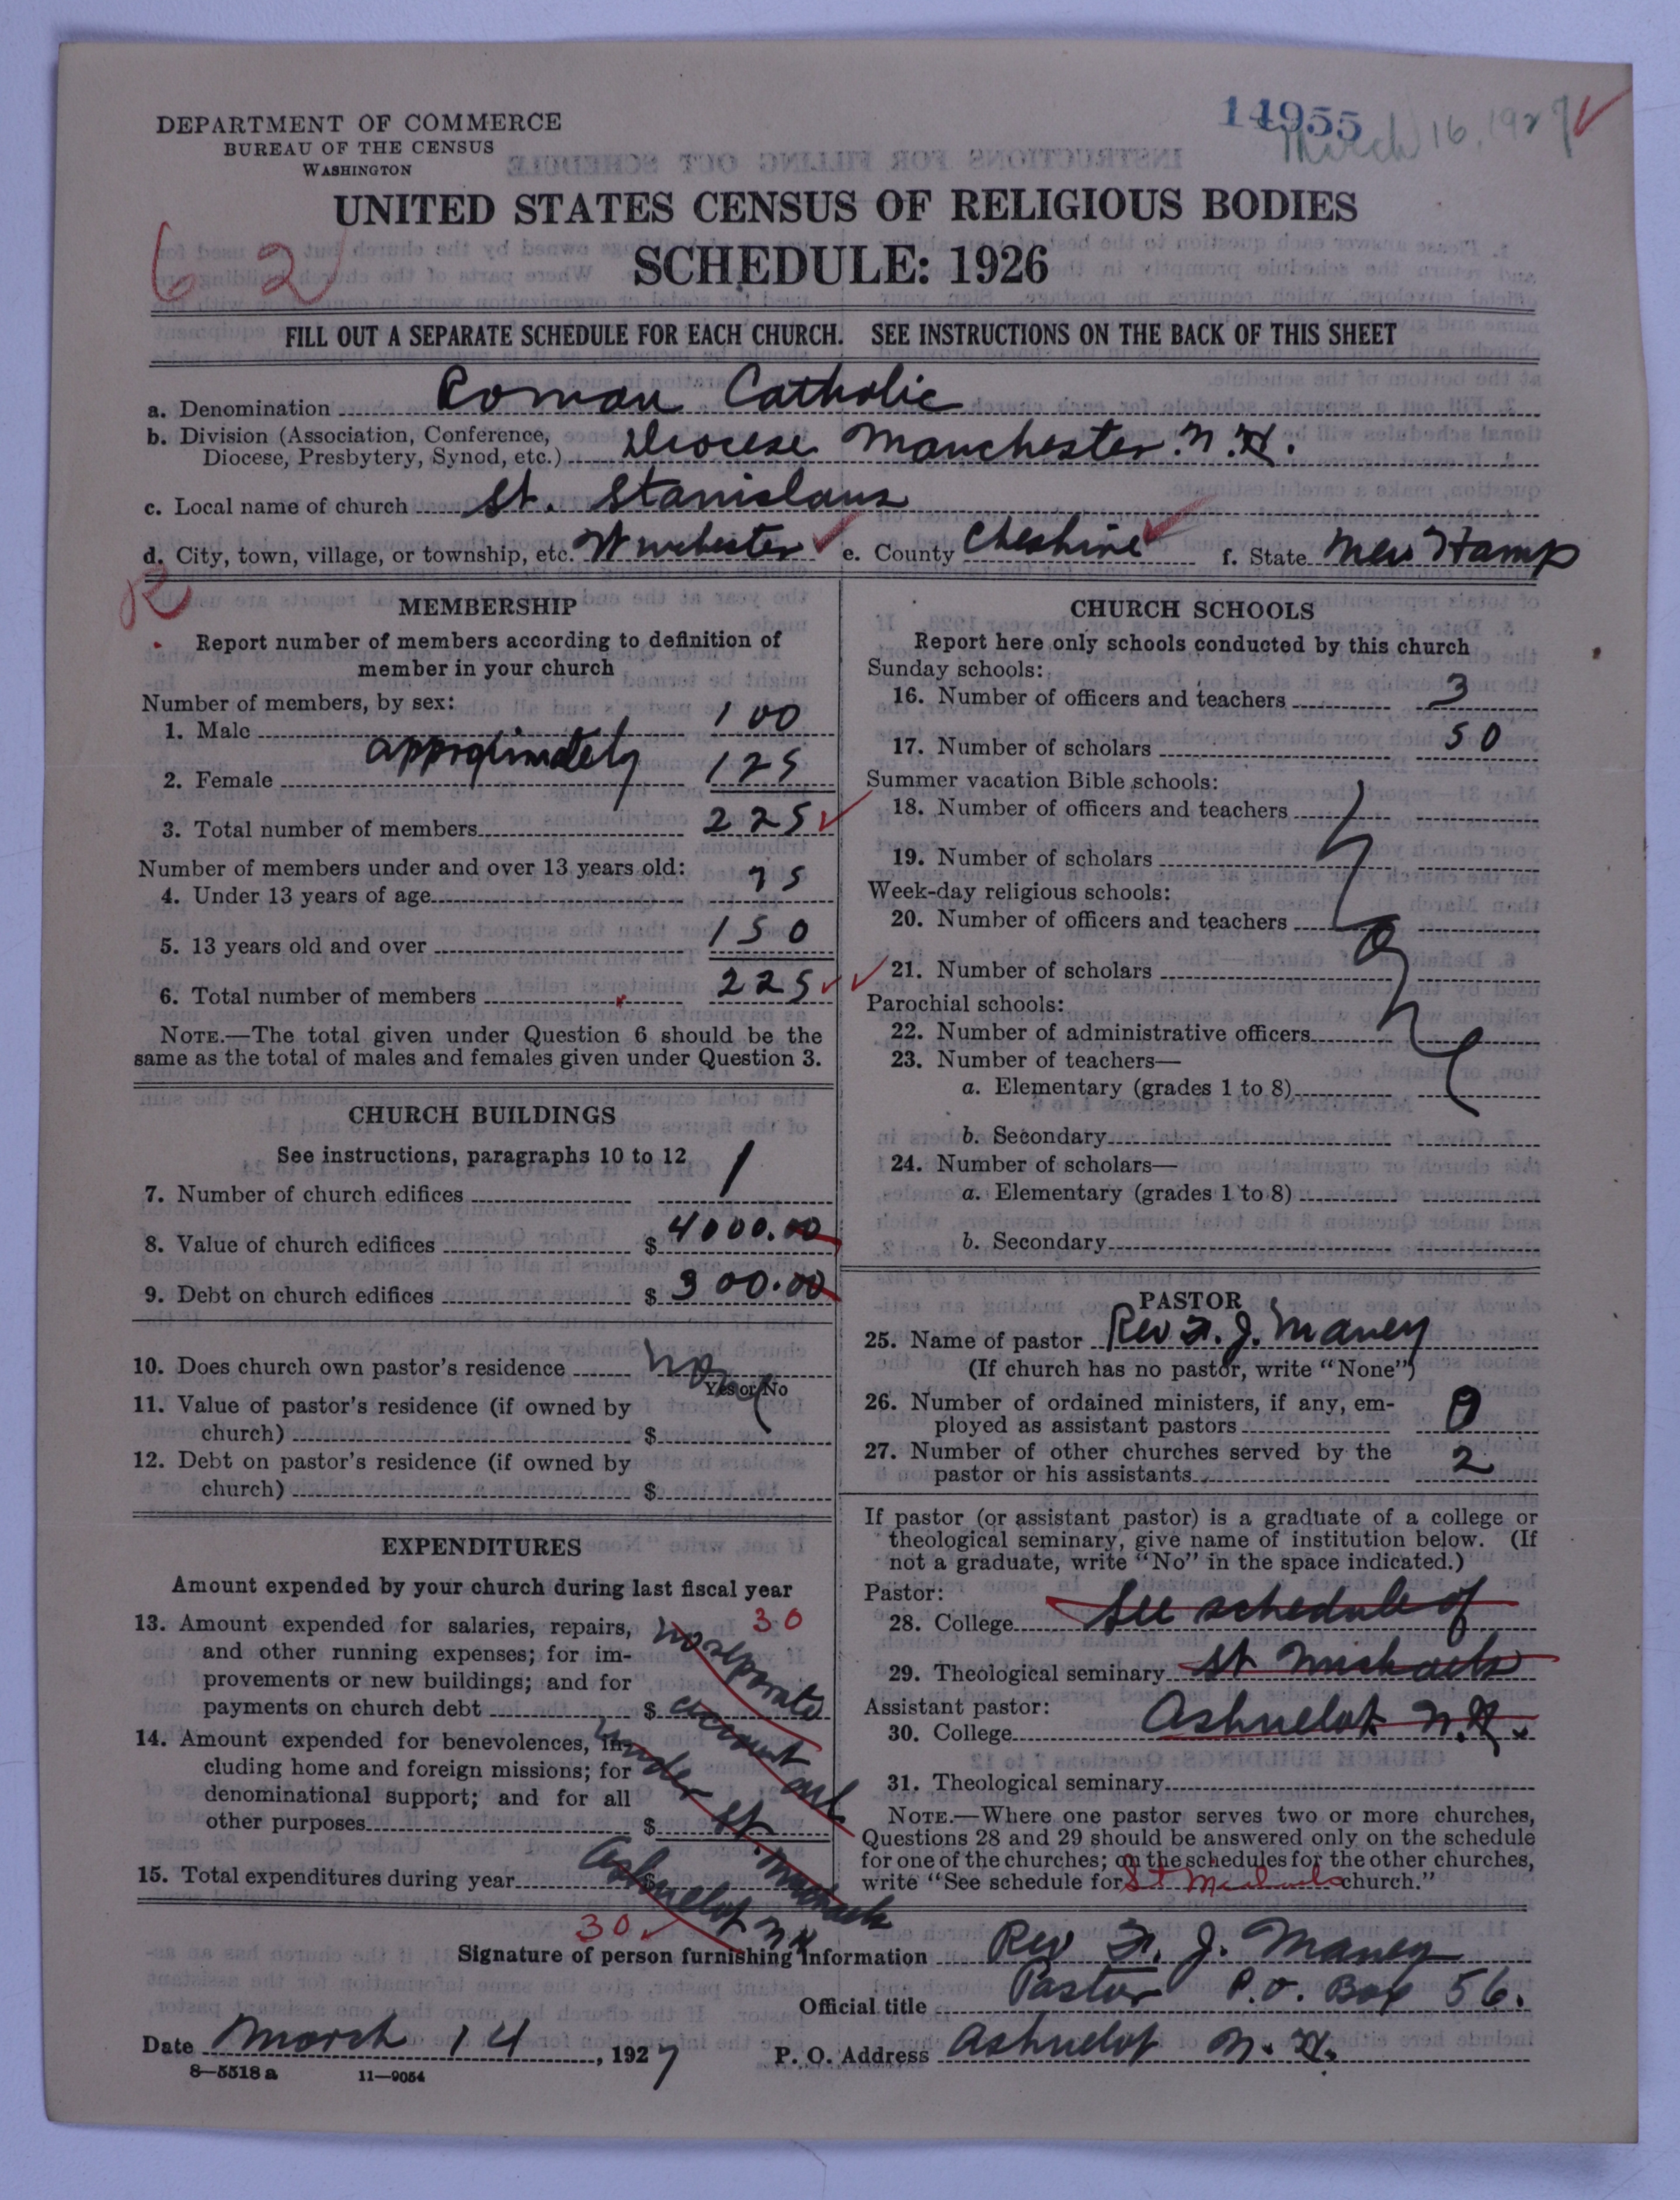 DEPARTMENT OF COMMERCE
BUREAU OF THE CENSUS
WASHINGTON
14955
March 16, 1927
UNITED STATES CENSUS OF RELIGIOUS BODIES
SCHEDULE: 1926
62
FILL OUT A SEPARATE SCHEDULE FOR EACH CHURCH. SEE INSTRUCTIONS ON THE BACK OF THIS SHEET
a. Denomination Roman Catholic
b. Division (Association, Conference,
Diocese, Presbytery, Synod, etc.) Diocese Manchester. N.H.
c. Local name of church St. Stanislaus
d. City, town, village, or township, etc. Winchester e. County Cheshire f. State New Hamp
R
MEMBERSHIP
Report number of members according to definition of
member in your church
Number of members, by sex:
1. Male 100
approximately
2. Female 125
3. Total number of members 225
Number of members under and over 13 years old:
4. Under 13 years of age 75
5. 13 years old and over 150
6. Total number of members 225
NOTE.—The total given under Question 6 should be the
same as the total of males and females given under Question 3.
CHURCH BUILDINGS
See instructions, paragraphs 10 to 12
7. Number of church edifices 1
8. Value of church edifices $ 4000.00
9. Debt on church edifices $ 300.00
10. Does church own pastor's residence none
Yes or No
11. Value of pastor's residence (if owned by
church) $
12. Debt on pastor's residence (if owned by
church) $
EXPENDITURES
Amount expended by your church during last fiscal year
13. Amount expended for salaries, repairs, 30
and other running expenses; for im-
provements or new buildings; and for
payments on church debt $
no separate
account
under St. Michaels
Ashuelot N H
14. Amount expended for benevolences, in-
cluding home and foreign missions; for
denominational support; and for all
other purposes $
15. Total expenditures during year $
30
CHURCH SCHOOLS
Report here only schools conducted by this church
Sunday schools:
16. Number of officers and teachers 3
17. Number of scholars 50
Summer vacation Bible schools:
18. Number of officers and teachers
19. Number of scholars
Week-day religious schools:
20. Number of officers and teachers
21. Number of scholars
none
Parochial schools:
22. Number of administrative officers
23. Number of teachers—
a. Elementary (grades 1 to 8)
b. Secondary
24. Number of scholars—
a. Elementary (grades 1 to 8)
b. Secondary
PASTOR
25. Name of pastor Rev F. J. Maney
(If church has no pastor, write "None")
26. Number of ordained ministers, if any, em-
ployed as assistant pastors 0
27. Number of other churches served by the
pastor or his assistants 2
If pastor (or assistant pastor) is a graduate of a college or
theological seminary, give name of institution below. (If
not a graduate, write "No" in the space indicated.)
Pastor:
28. College See schedule of
29. Theological seminary St Michaels
Assistant pastor:
30. College Ashuelot N.H.
31. Theological seminary
NOTE.—Where one pastor serves two or more churches,
Questions 28 and 29 should be answered only on the schedule
for one of the churches; on the schedules for the other churches,
write "See schedule for St Michaels church."
Signature of person furnishing information Rev F. J. Maney
Official title Pastor P.O. Box 56.
Date March 14, 1927 P. O. Address Ashuelot N. H.
8—5518 a 11—9054